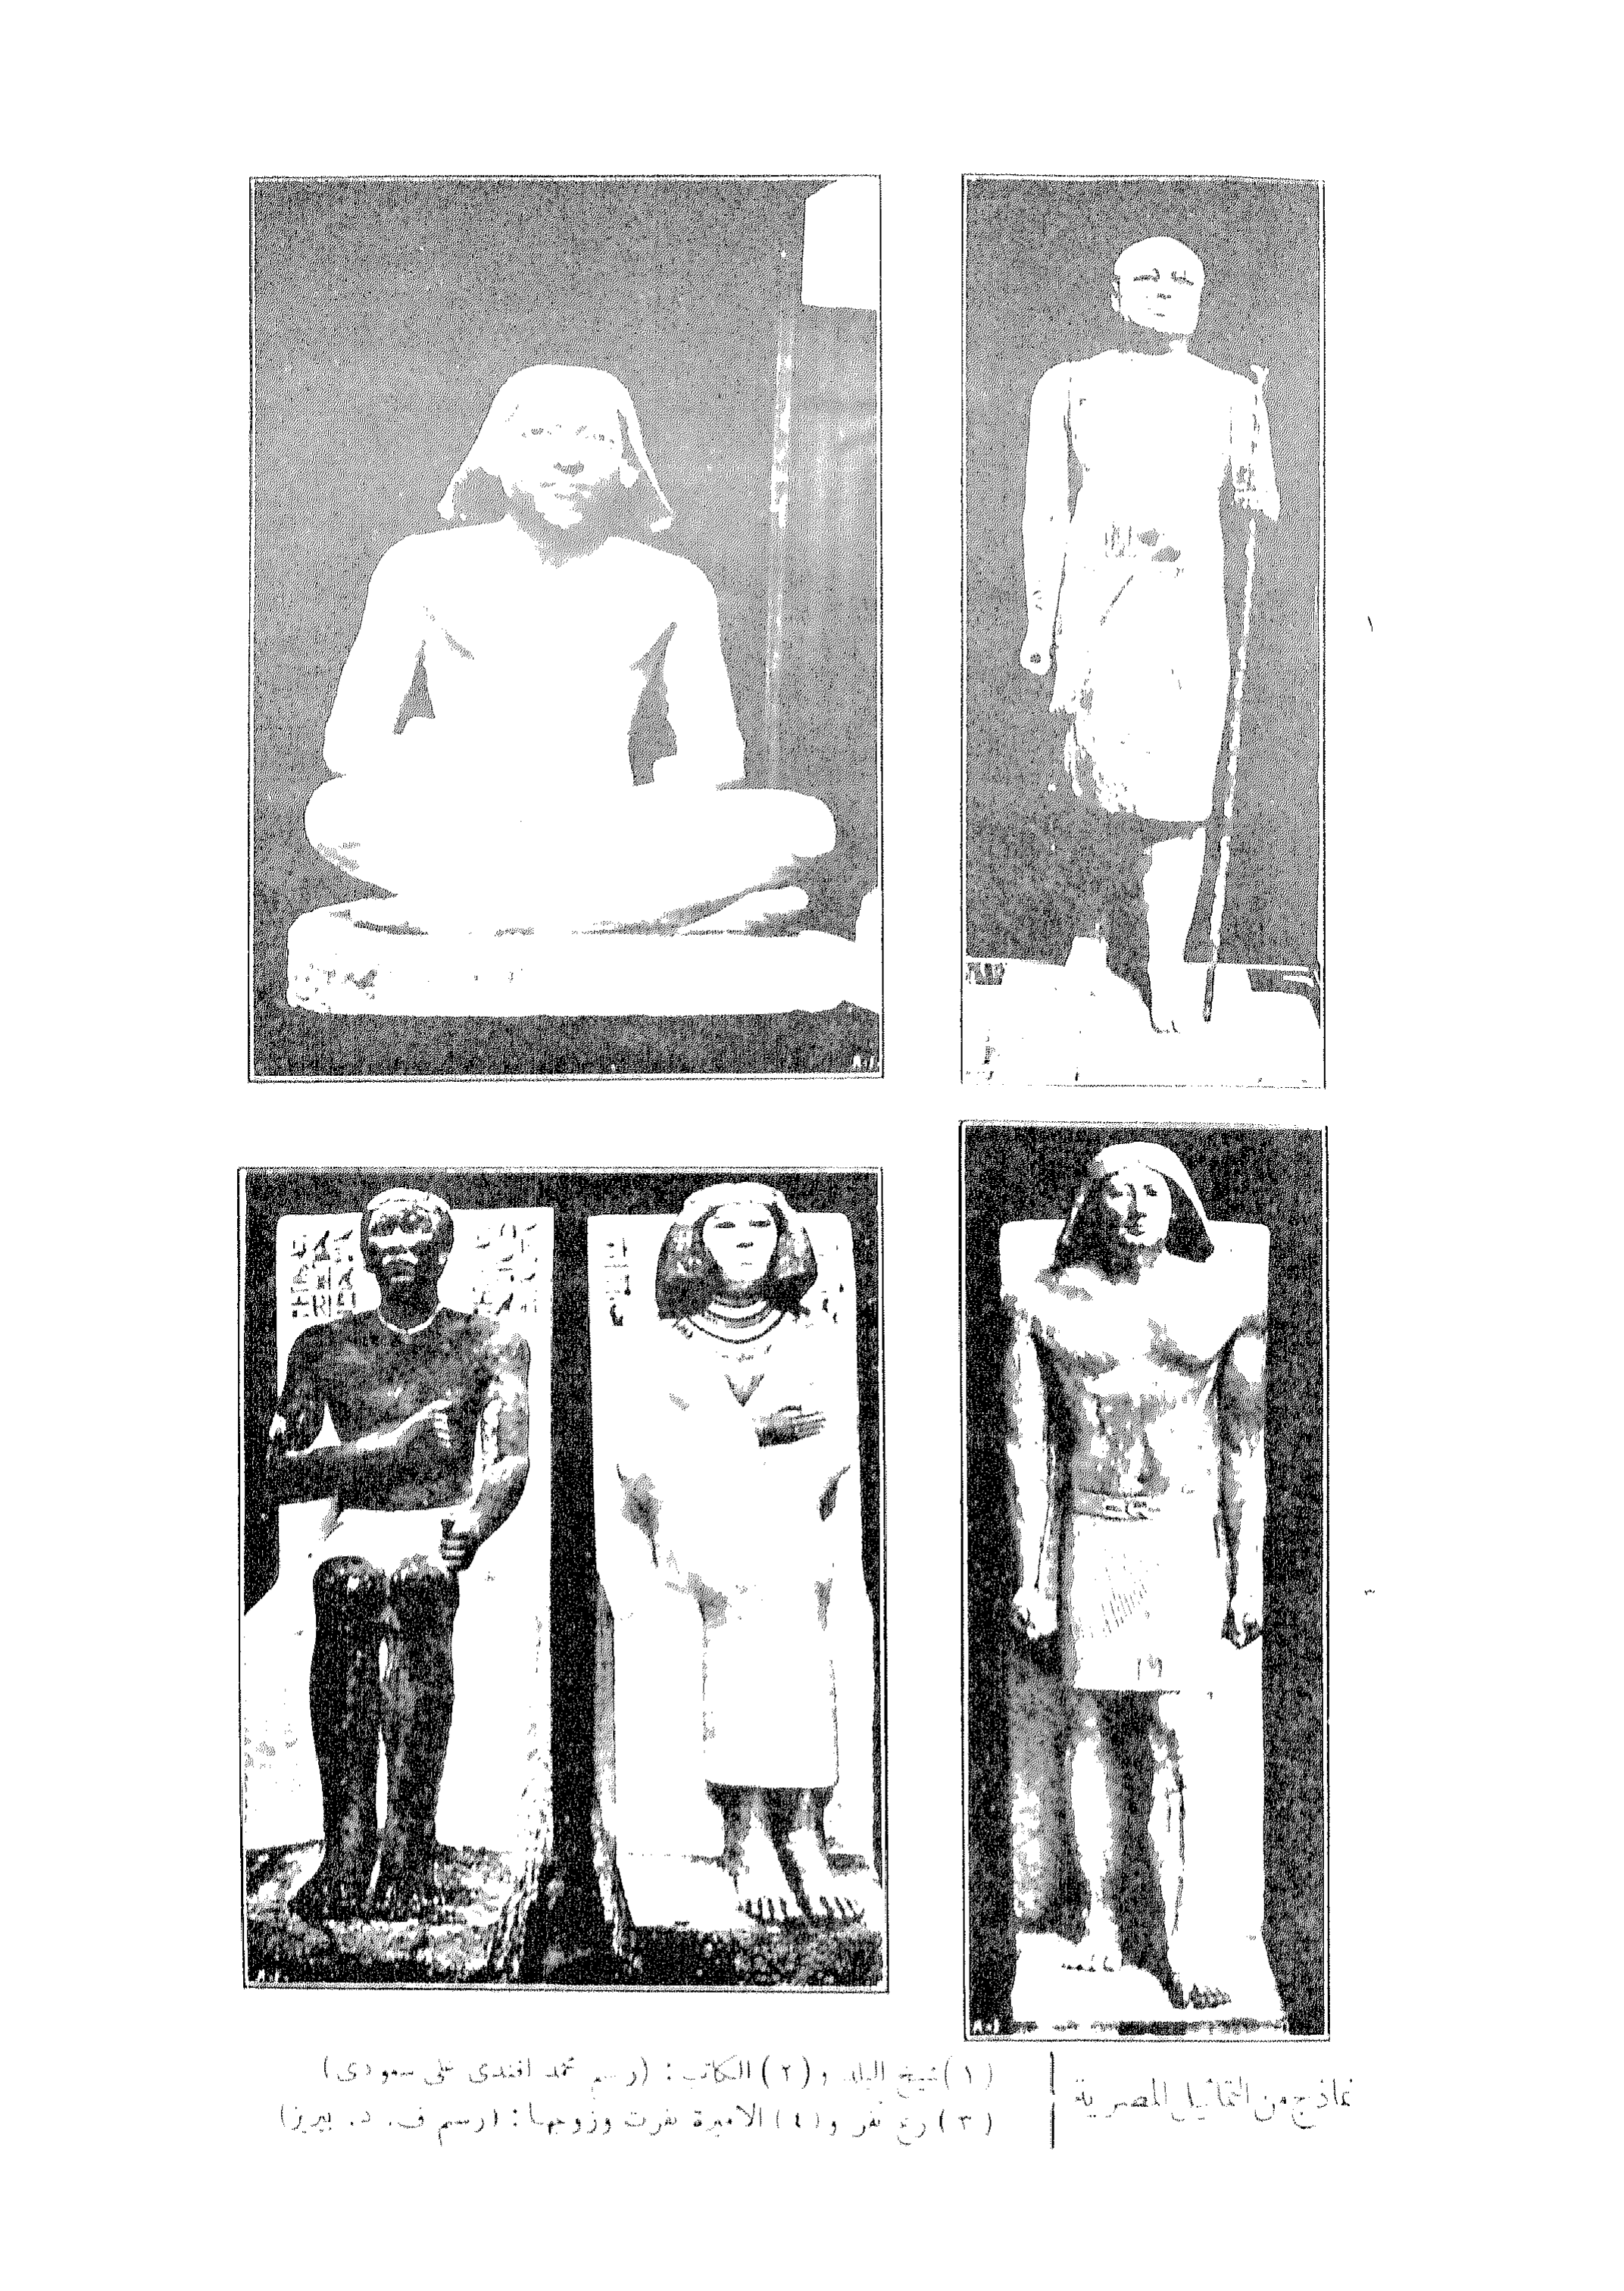 ١
٣
نماذج من التماثيل المصرية
(١) شيخ البلد و (٢) الكاتب : (رسم محمد افندى على سعودى)
(٣) رع نفر و (٤) الاميرة نفرت وزوجها : (رسم ف. د. بيريز)